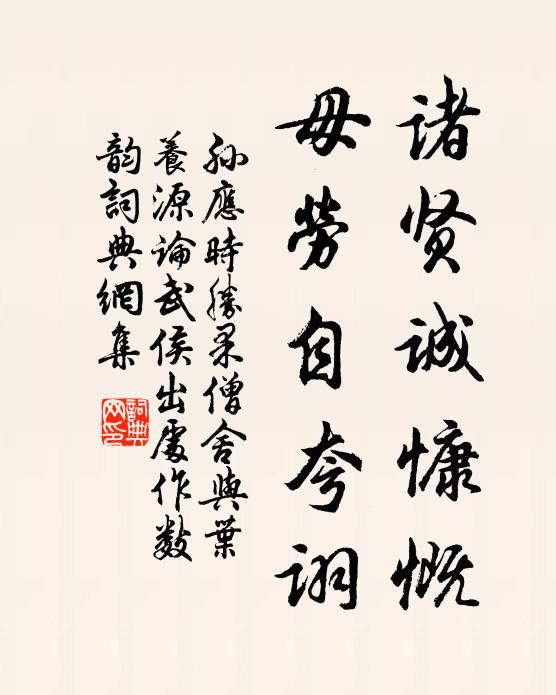 诸贤诚慷慨
毋劳自夸诩
孙應時勝果僧舍與葉
養源論武侯出處作數
韵詞典網集
詞典網印